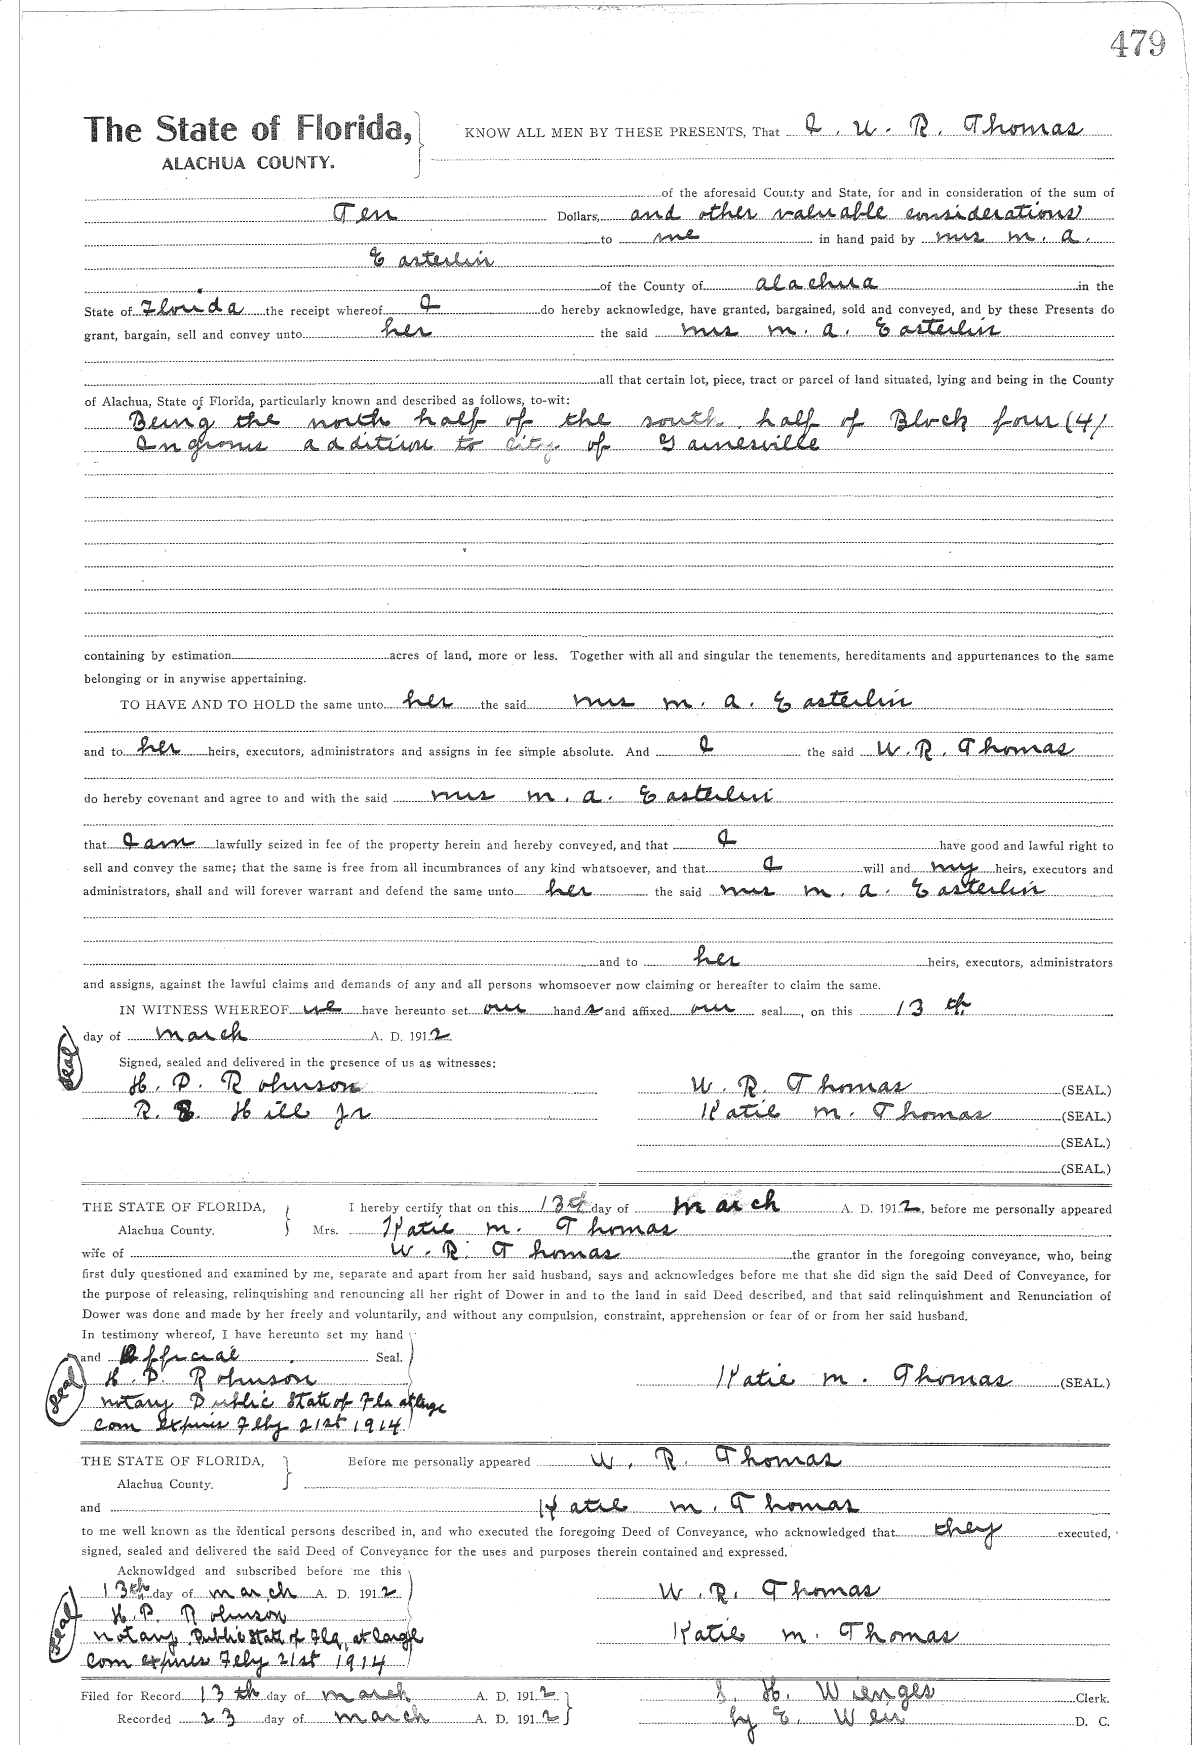 479
The State of Florida, KNOW ALL MEN BY THESE PRESENTS, That I, W. R. Thomas
ALACHUA COUNTY.
of the aforesaid County and State, for and in consideration of the sum of
Ten Dollars, and other valuable considerations
to me in hand paid by Mrs M. A.
Easterlin
of the County of Alachua in the
State of Florida the receipt whereof I do hereby acknowledge, have granted, bargained, sold and conveyed, and by these Presents do
grant, bargain, sell and convey unto her the said Mrs M. A. Easterlin
all that certain lot, piece, tract or parcel of land situated, lying and being in the County
of Alachua, State of Florida, particularly known and described as follows, to-wit:
Being the north half of the south half of Block four (4)
addition to city of Gainesville
containing by estimation acres of land, more or less. Together with all and singular the tenements, hereditaments and appurtenances to the same
belonging or in anywise appertaining.
TO HAVE AND TO HOLD the same unto her the said Mrs M. A. Easterlin
and to her heirs, executors, administrators and assigns in fee simple absolute. And I the said W. R. Thomas
do hereby covenant and agree to and with the said Mrs M. A. Easterlin
that I am lawfully seized in fee of the property herein and hereby conveyed, and that I have good and lawful right to
sell and convey the same; that the same is free from all incumbrances of any kind whatsoever, and that I will and my heirs, executors and
administrators, shall and will forever warrant and defend the same unto her the said Mrs M. A. Easterlin
and to her heirs, executors, administrators
and assigns, against the lawful claims and demands of any and all persons whomsoever now claiming or hereafter to claim the same.
IN WITNESS WHEREOF we have hereunto set our hands and affixed our seal, on this 13th
day of March A. D. 1912
Seal
Signed, sealed and delivered in the presence of us as witnesses:
H. P. Rohnson W. R. Thomas (SEAL.)
R. Hill Jr Katie M. Thomas (SEAL.)
(SEAL.)
(SEAL.)
THE STATE OF FLORIDA, I hereby certify that on this 13th day of March A. D. 1912, before me personally appeared
Alachua County. Mrs. Katie M. Thomas
wife of W. R. Thomas the grantor in the foregoing conveyance, who, being
first duly questioned and examined by me, separate and apart from her said husband, says and acknowledges before me that she did sign the said Deed of Conveyance, for
the purpose of releasing, relinquishing and renouncing all her right of Dower in and to the land in said Deed described, and that said relinquishment and Renunciation of
Dower was done and made by her freely and voluntarily, and without any compulsion, constraint, apprehension or fear of or from her said husband.
In testimony whereof, I have hereunto set my hand
and official Seal.
Seal H. P. Rohnson Katie M. Thomas (SEAL.)
Notary Public State of Fla at large
Com expires Feby 21st 1914
THE STATE OF FLORIDA, Before me personally appeared W. R. Thomas
Alachua County.
and Katie M. Thomas
to me well known as the identical persons described in, and who executed the foregoing Deed of Conveyance, who acknowledged that they executed,
signed, sealed and delivered the said Deed of Conveyance for the uses and purposes therein contained and expressed.
Acknowldged and subscribed before me this
13th day of March A. D. 1912 W. R. Thomas
Seal H. P. Rohnson
Notary Public State of Fla, at large Katie M. Thomas
Com expires Feby 21st 1914
Filed for Record 13th day of March A. D. 1912 S. H. Wienges Clerk.
Recorded 23 day of March A. D. 1912 by E. Weir D. C.